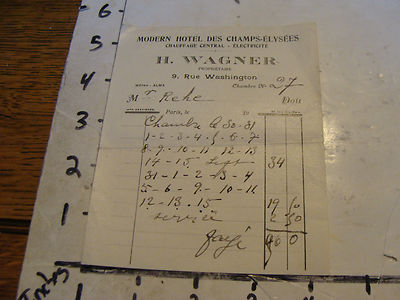 MODERN HOTEL DES CHAMPS-ÉLYSÉES
CHAUFFAGE CENTRAL - ÉLECTRICITÉ
H. WAGNER
PROPRIÉTAIRE
9, Rue Washington
Chambre No 27
M r Rehe Doit
Paris, le 19
Chambre le 30-31
1-2-3-4-5-6-7
8-9-10-11-12-13
14-15 Sept 34
31-1-2-3-4
5-6-9-10-11
12-13-15 19 50
service 2 50
payé 40 0
6
5
4
3
2